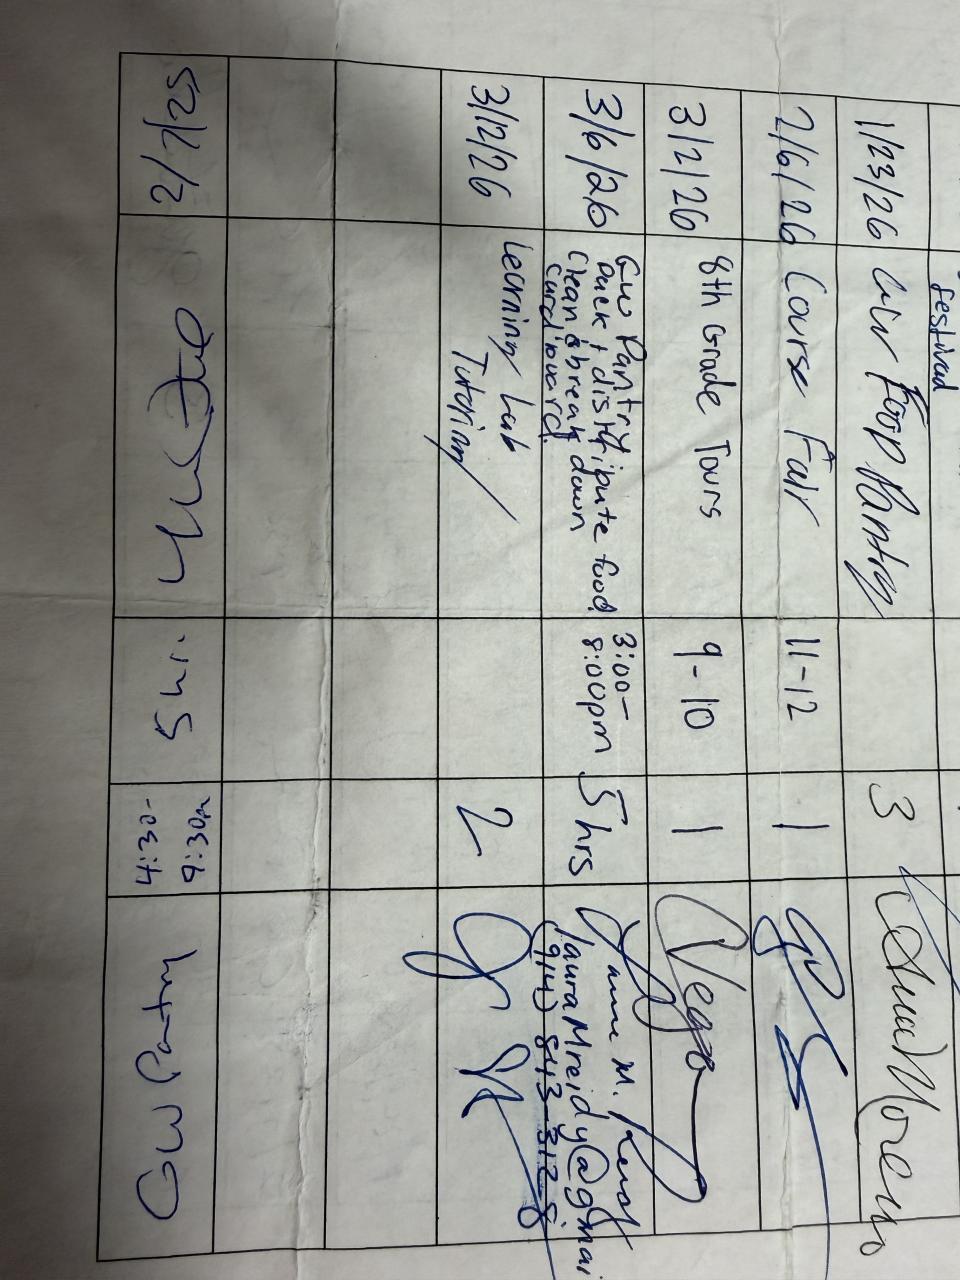 festival
1/23/26
Food Pantry
3
2/6/26
Course Fair
11-12
1
3/2/26
8th Grade Tours
9-10
1
Vega
3/6/26
GW Pantry
pack + distribute food
clean & break down
cardboard
3:00-
8:00pm
5 hrs
M.
lauraMreidy@gmai
(914) 843-312
3/12/26
Learning Lab
Tutoring
2
2/7/25
5 hr.
4:30-
9:30pm
GW Pantry